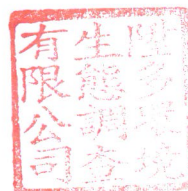 環境
生態調查
有限公司